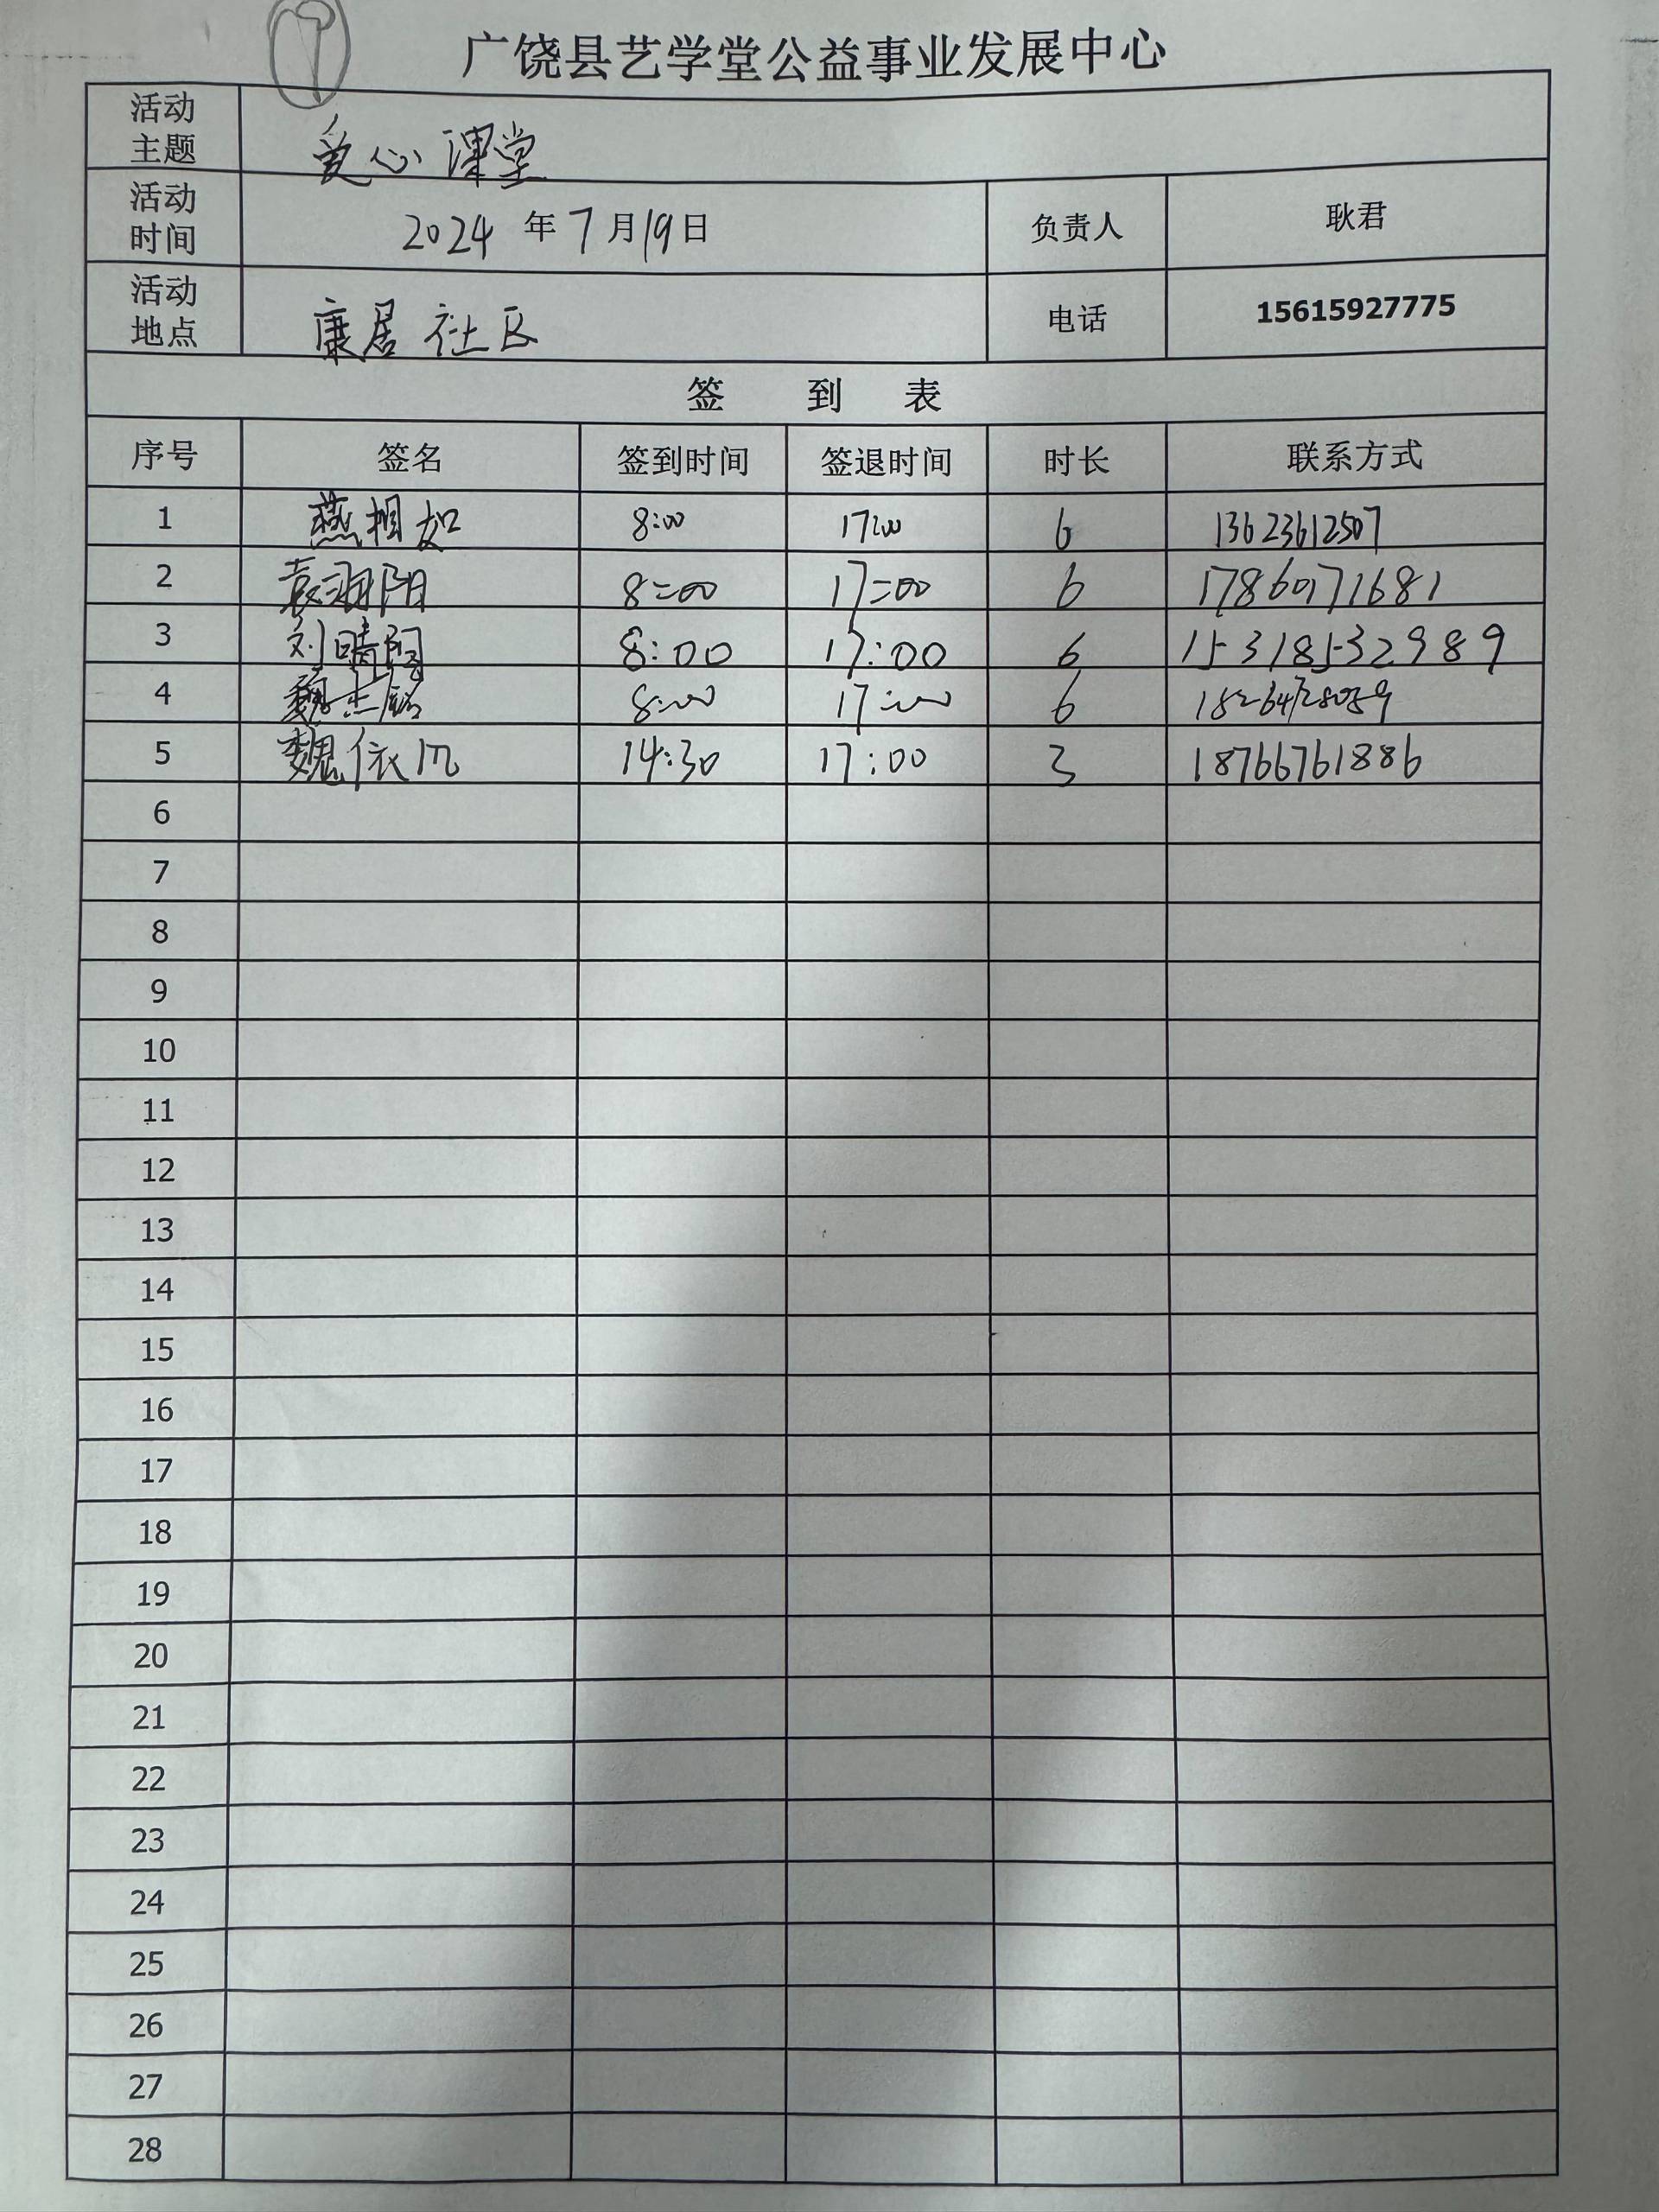 广饶县艺学堂公益事业发展中心
活动主题 爱心课堂
活动时间 2024 年 7 月 19 日 负责人 耿君
活动地点 康居社区 电话 15615927775
签 到 表
序号 签名 签到时间 签退时间 时长 联系方式
1 燕相如 8:00 17:00 6 13623612507
2 袁羽阳 8:00 17:00 6 17860171681
3 刘晴阔 8:00 17:00 6 15318532989
4 魏杰铭 8:00 17:00 6
5 魏依凡 14:30 17:00 3 18766761886
6
7
8
9
10
11
12
13
14
15
16
17
18
19
20
21
22
23
24
25
26
27
28